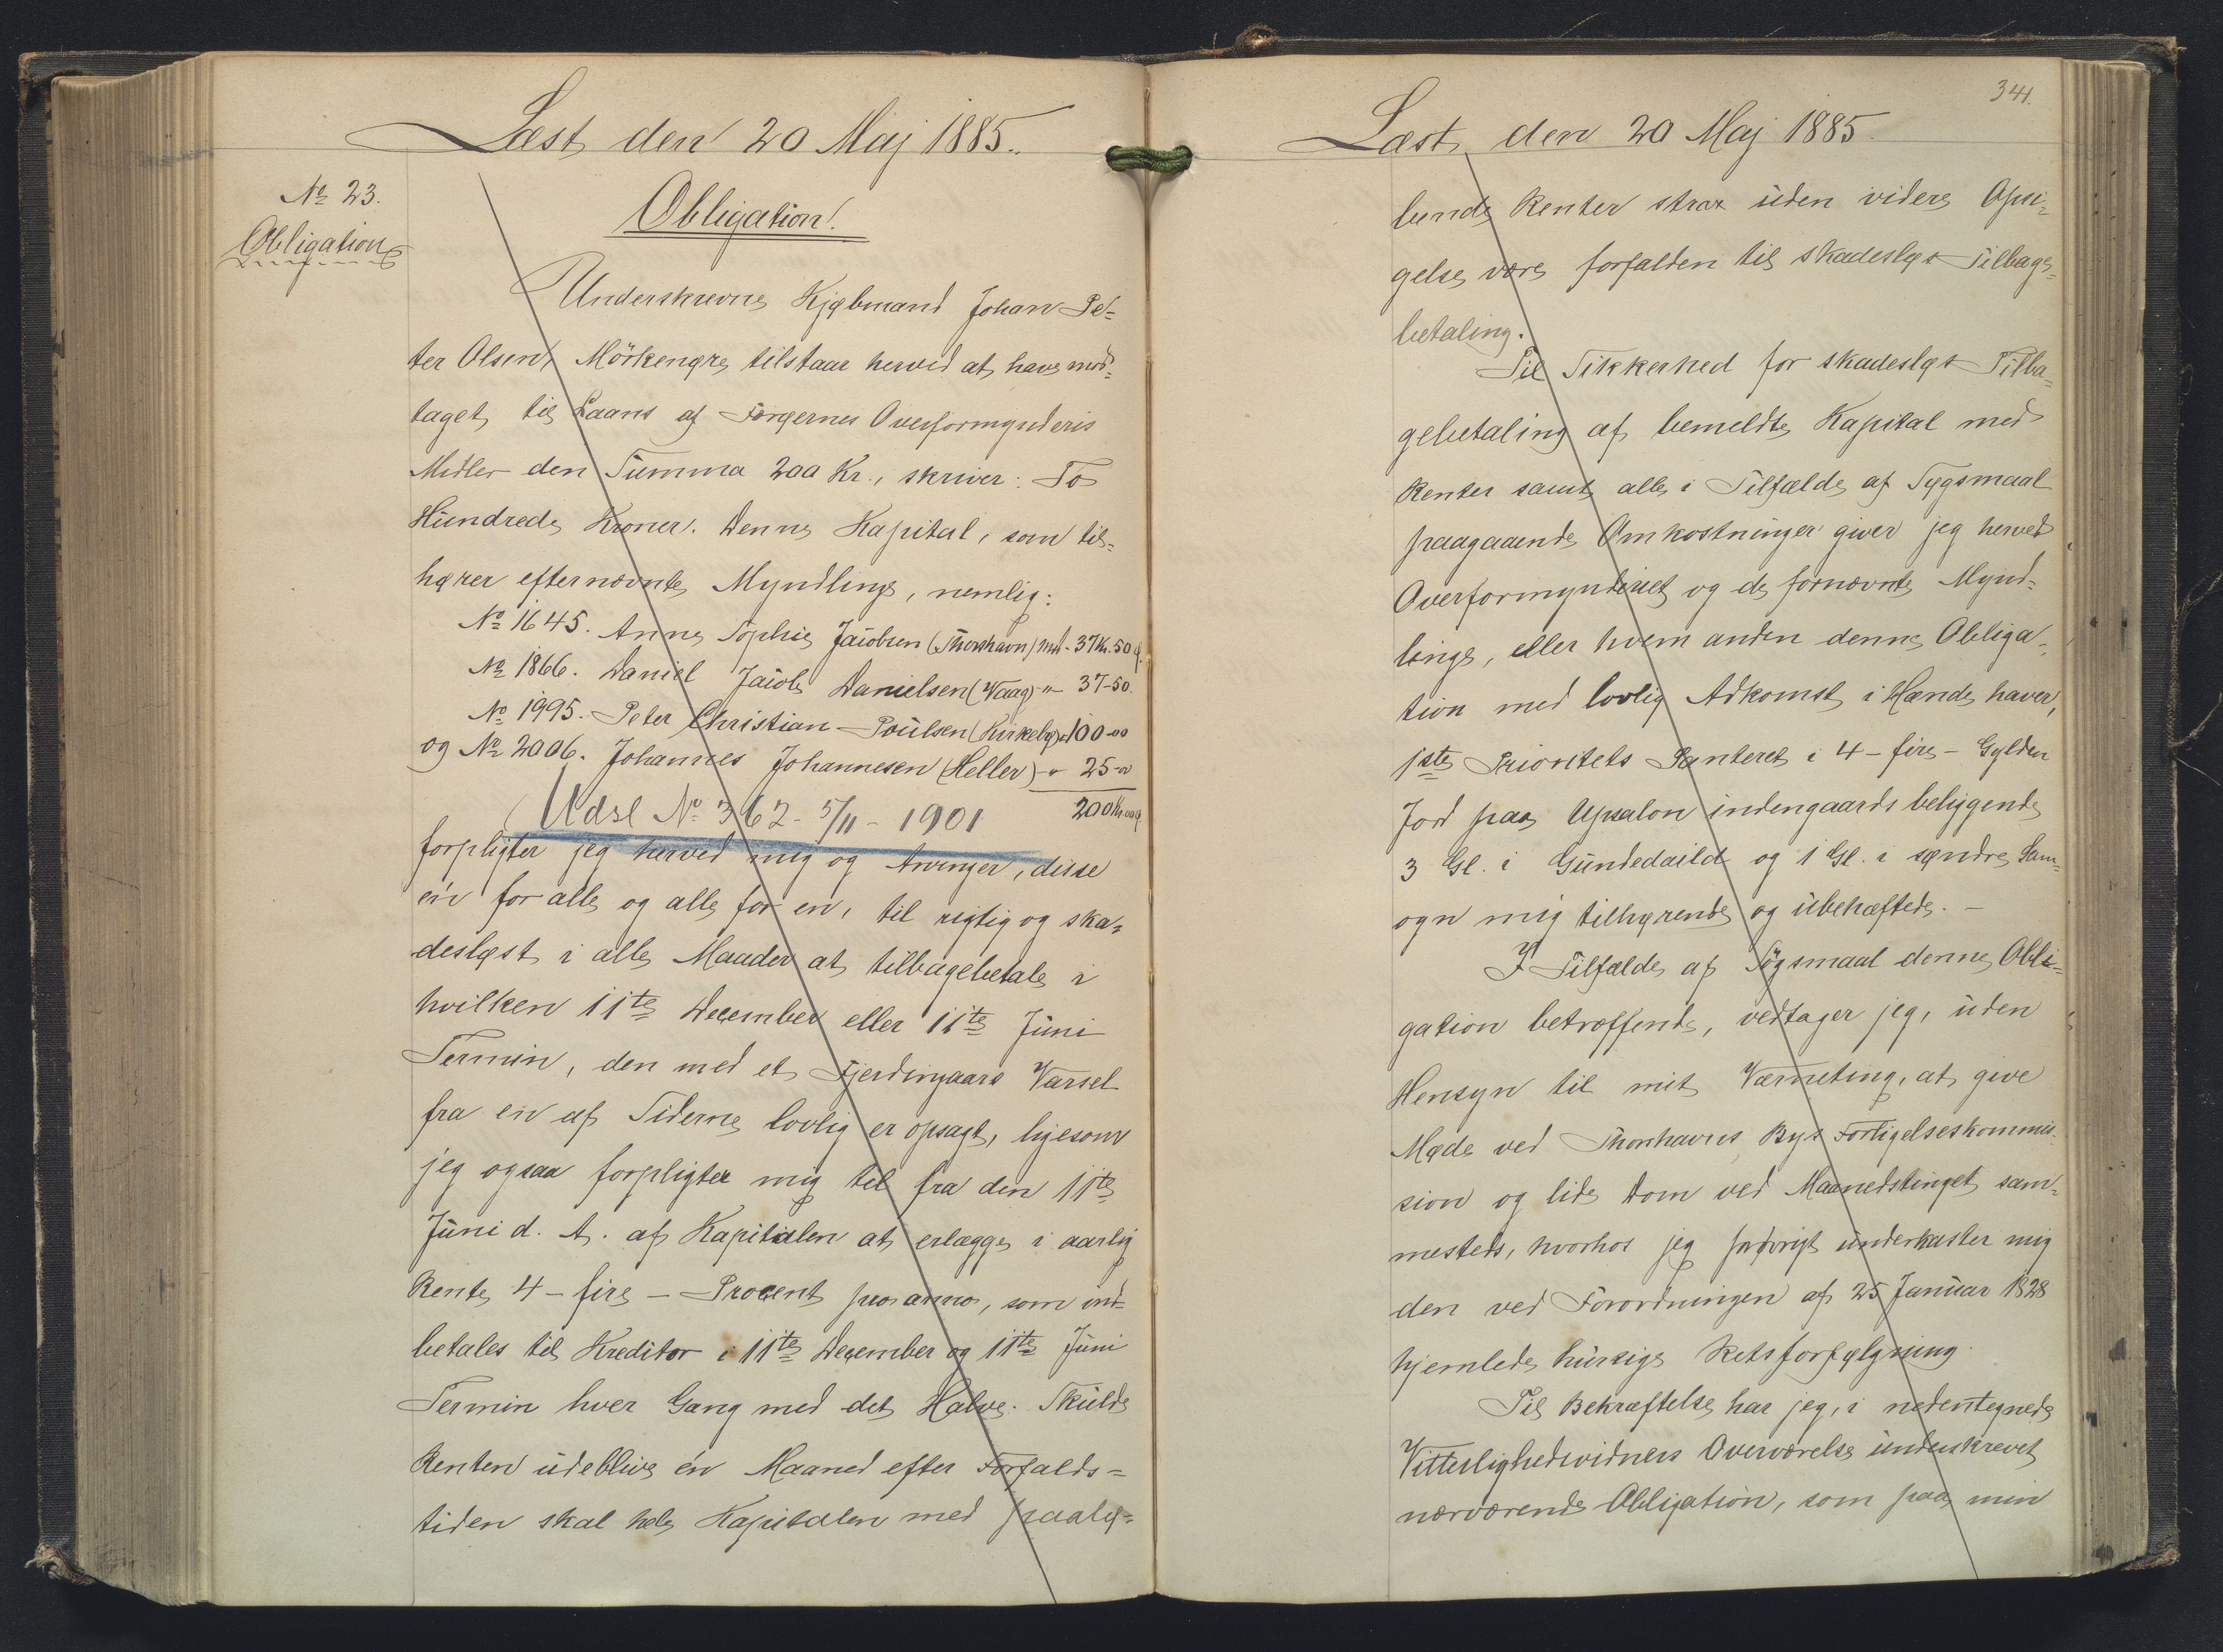 Læst den 20 Maj 1885.
No 23.
Obligation
Obligation!
Underskrevne Kjøbmand Johan Pe-
ter Olsen, Mörkengre tilstaar herved at have mod-
taget til Laans af Færøernes Overformynderis
Midler den Summa 200 Kr., skriver: To
Hundrede Kroner. Denne Kapital, som til-
hører efternævnte Myndlinge, nemlig:
No 1645. Anne Sophie Jacobsen (Thorshavn) med - 37 Kr. 50 Ø.
No 1866. Daniel Jacob Danielsen (Waag) - " - 37-50.
No 1995. Peter Christian Poulsen (Kirkeby) " 100-00
og No 2006. Johannes Johannesen (Heller) - " 25-00
200 Kr. 00 Ø.
Udsl No 362 - 5/11 - 1901
forpligter jeg herved mig og Arvinger, disse
én for alle og alle for en, til rigtig og ska-
desløst i alle Maader at tilbagebetale i
hvilken 11te December eller 11te Juni
Termin, den med et Fjerdingaars Varsel
fra en af Siderne lovlig er opsagt, ligesom
jeg ogsaa forpligter mig til fra den 11te
Juni d. A. af Kapitalen at erlægge i aarlig
Rente 4 - fire - Procent pro anno, som ind-
betales til Kreditor i 11te December og 11te Juni
Termin hver Gang med det Halve. Skulde
Renten udeblive én Maaned efter Forfalds-
tiden skal hele Kapitalen med paalø-
341.
Læst den 20 Maj 1885.
bende Renter strax uden videre Opsi-
gelse være forfalden til skadesløs Tilbage-
betaling.
Til Sikkerhed for skadesløs Tilba-
gebetaling af bemeldte Kapital med
Renter samt alle i Tilfælde af Søgsmaal
paagaaende Omkostninger giver jeg herved
Overformynderiet og de fornævnte Mynd-
linge, eller hvem anden denne Obliga-
tion med lovlig Adkomst i Hænde haver,
1ste Prioritets Panteret i 4 - fire - Gylden
Jord paa Upsalon indengaards beliggende
3 Gl. i Gundedaild og 1 Gl. i søndre Sam-
ogn mig tilhørende og ubehæftede. -
I Tilfælde af Søgsmaal denne Obli-
gation betræffende, vedtager jeg, uden
Hensyn til mit Værneting, at give
Møde ved Thorshavns Bys Forligelseskommis-
sion og lide Dom ved Maanedstinget sam-
mesteds, hvorhos jeg forøvrigt underkaster mig
den ved Forordningen af 25 Januar 1828
hjemlede hurtige Retsforfølgning.
Til Bekræftelse har jeg, i nedentegnede
Vitterlighedsvidners Overværelse underskrevet
nærværende Obligation, som paa min